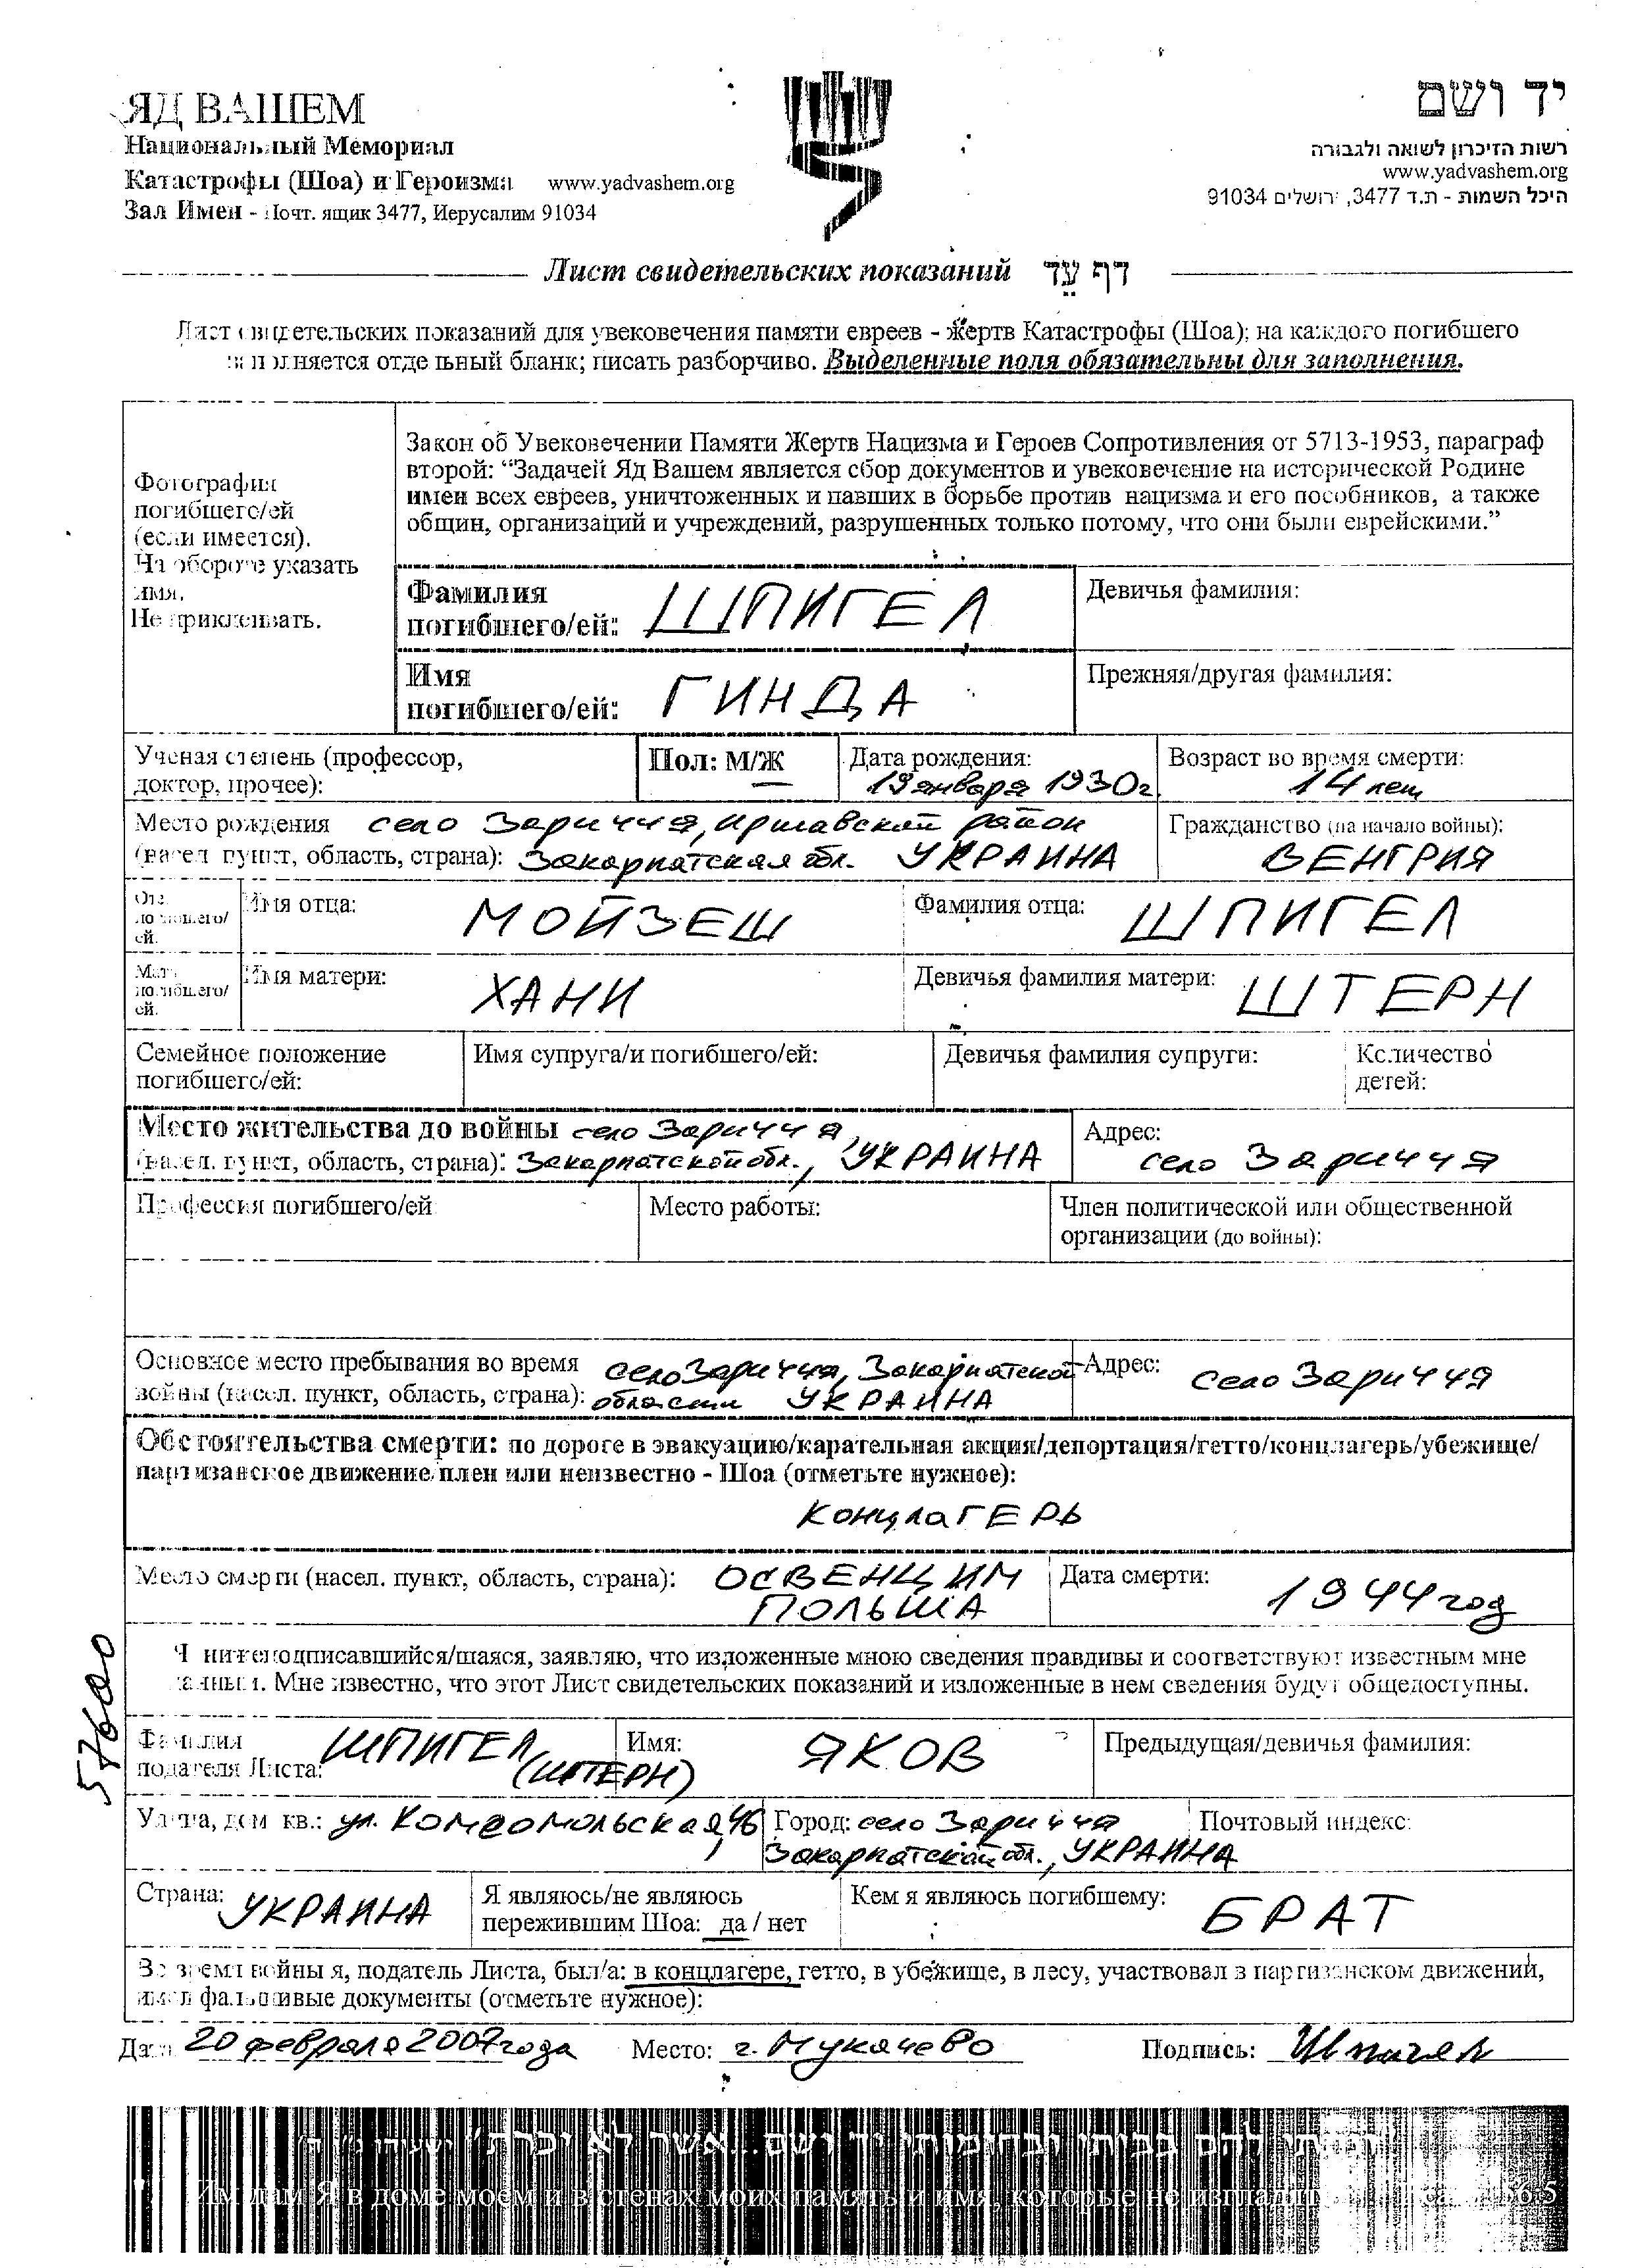 ЯД ВАШЕМ
Национальный Мемориал
Катастрофы (Шоа) и Героизма www.yadvashem.org
Зал Имен - Почт. ящик 3477, Иерусалим 91034
יד ושם
רשות הזיכרון לשואה ולגבורה
www.yadvashem.org
היכל השמות - ת.ד 3477, ירושלים 91034
Лист свидетельских показаний דף עֵד
Лист свидетельских показаний для увековечения памяти евреев - жертв Катастрофы (Шоа); на каждого погибшего
заполняется отдельный бланк; писать разборчиво. Выделенные поля обязательны для заполнения.
Фотография
погибшего/ей
(если имеется).
На обороте указать
имя.
Не приклеивать.
Закон об Увековечении Памяти Жертв Нацизма и Героев Сопротивления от 5713-1953, параграф
второй: “Задачей Яд Вашем является сбор документов и увековечение на исторической Родине
имен всех евреев, уничтоженных и павших в борьбе против нацизма и его пособников, а также
общин, организаций и учреждений, разрушенных только потому, что они были еврейскими.”
Фамилия
погибшего/ей: ШПИГЕЛ
Девичья фамилия:
Имя
погибшего/ей: ГИНДА
Прежняя/другая фамилия:
Ученая степень (профессор,
доктор, прочее):
Пол: М/Ж
Дата рождения:
19 января 1930г.
Возраст во время смерти:
14 лет
Место рождения село Заричча, Иршавский район
(насел. пункт, область, страна): Закарпатская обл. УКРАИНА
Гражданство (на начало войны):
ВЕНГРИЯ
Отец
погибшего/
ей.
Имя отца: МОЙЗЕШ
Фамилия отца: ШПИГЕЛ
Мать
погибшего/
ей.
Имя матери: ХАНИ
Девичья фамилия матери: ШТЕРН
Семейное положение
погибшего/ей:
Имя супруга/и погибшего/ей:
Девичья фамилия супруги:
Количество
детей:
Место жительства до войны село Заричча,
(насел. пункт, область, страна): Закарпатской обл., УКРАИНА
Адрес:
село Заричча
Профессия погибшего/ей
Место работы:
Член политической или общественной
организации (до войны):
Основное место пребывания во время село Заричча, Закарпатской
войны (насел. пункт, область, страна): области УКРАИНА
Адрес: село Заричча
Обстоятельства смерти: по дороге в эвакуацию/карательная акция/депортация/гетто/концлагерь/убежище/
партизанское движение/плен или неизвестно - Шоа (отметьте нужное):
КонцлаГЕРЬ
Место смерти (насел. пункт, область, страна): ОСВЕНЦИМ
ПОЛЬША
Дата смерти: 1944 год
Я нижеподписавшийся/шаяся, заявляю, что изложенные мною сведения правдивы и соответствуют известным мне
данным. Мне известно, что этот Лист свидетельских показаний и изложенные в нем сведения будут общедоступны.
Фамилия
подателя Листа: ШПИГЕЛ,
(ШТЕРН)
Имя: ЯКОВ
Предыдущая/девичья фамилия:
Улица, дом кв.: ул. Комсомольская, 46
Город: село Заричча
Закарпатской обл., УКРАИНА
Почтовый индекс:
Страна: УКРАИНА
Я являюсь/не являюсь
пережившим Шоа: да / нет
Кем я являюсь погибшему: БРАТ
Во время войны я, податель Листа, был/а: в концлагере, гетто, в убежище, в лесу, участвовал в партизанском движений,
имел фальшивые документы (отметьте нужное):
Дата 20 февраля 2007 года Место: г. Мукачево Подпись: Шпигел
Им дам Я в доме моем и в стенах моих память и имя, которые не